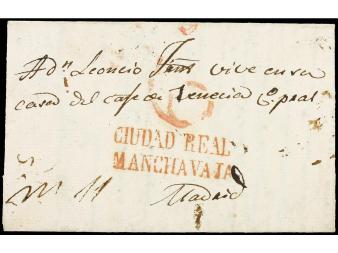 A dn Leoncio vive en su
casa del cafe de Venecia
CIUDAD REAL
MANCHA VAJA
Nº 11
Madrid